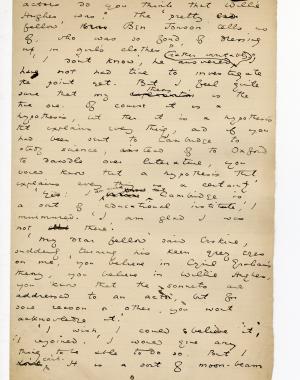 actors do you think that Willie
Hughes was? The 'pretty
fellow' Ben Jonson tells us
of, who was so fond of dressing
up in girls' clothes?'
'I don't know,' he answered
not had time to investigate
the point yet. But I feel quite
sure that my theory is the
true one. Of course it is a
hypothesis, but then it is a hypothesis
that explains everything, and if you
had been sent to Cambridge to
study science, instead of to Oxford
to dawdle over literature, you
would know that a hypothesis that
explains everything is a certainty'
'Yes: Cambridge is
a sort of educational institute', I
murmured. 'I am glad I was
not there.'
'My dear fellow' said Erskine,
suddenly turning his keen grey eyes
on me, 'you believe in Cyril Graham's
theory, you believe in Willie Hughes,
you know that the sonnets are
addressed to an actor, but for
some reason or other you won't
acknowledge it.'
'I wish I could believe it',
I rejoined. 'I would give any
thing to be able to do so. But I
can't. It is a sort of moon-beam